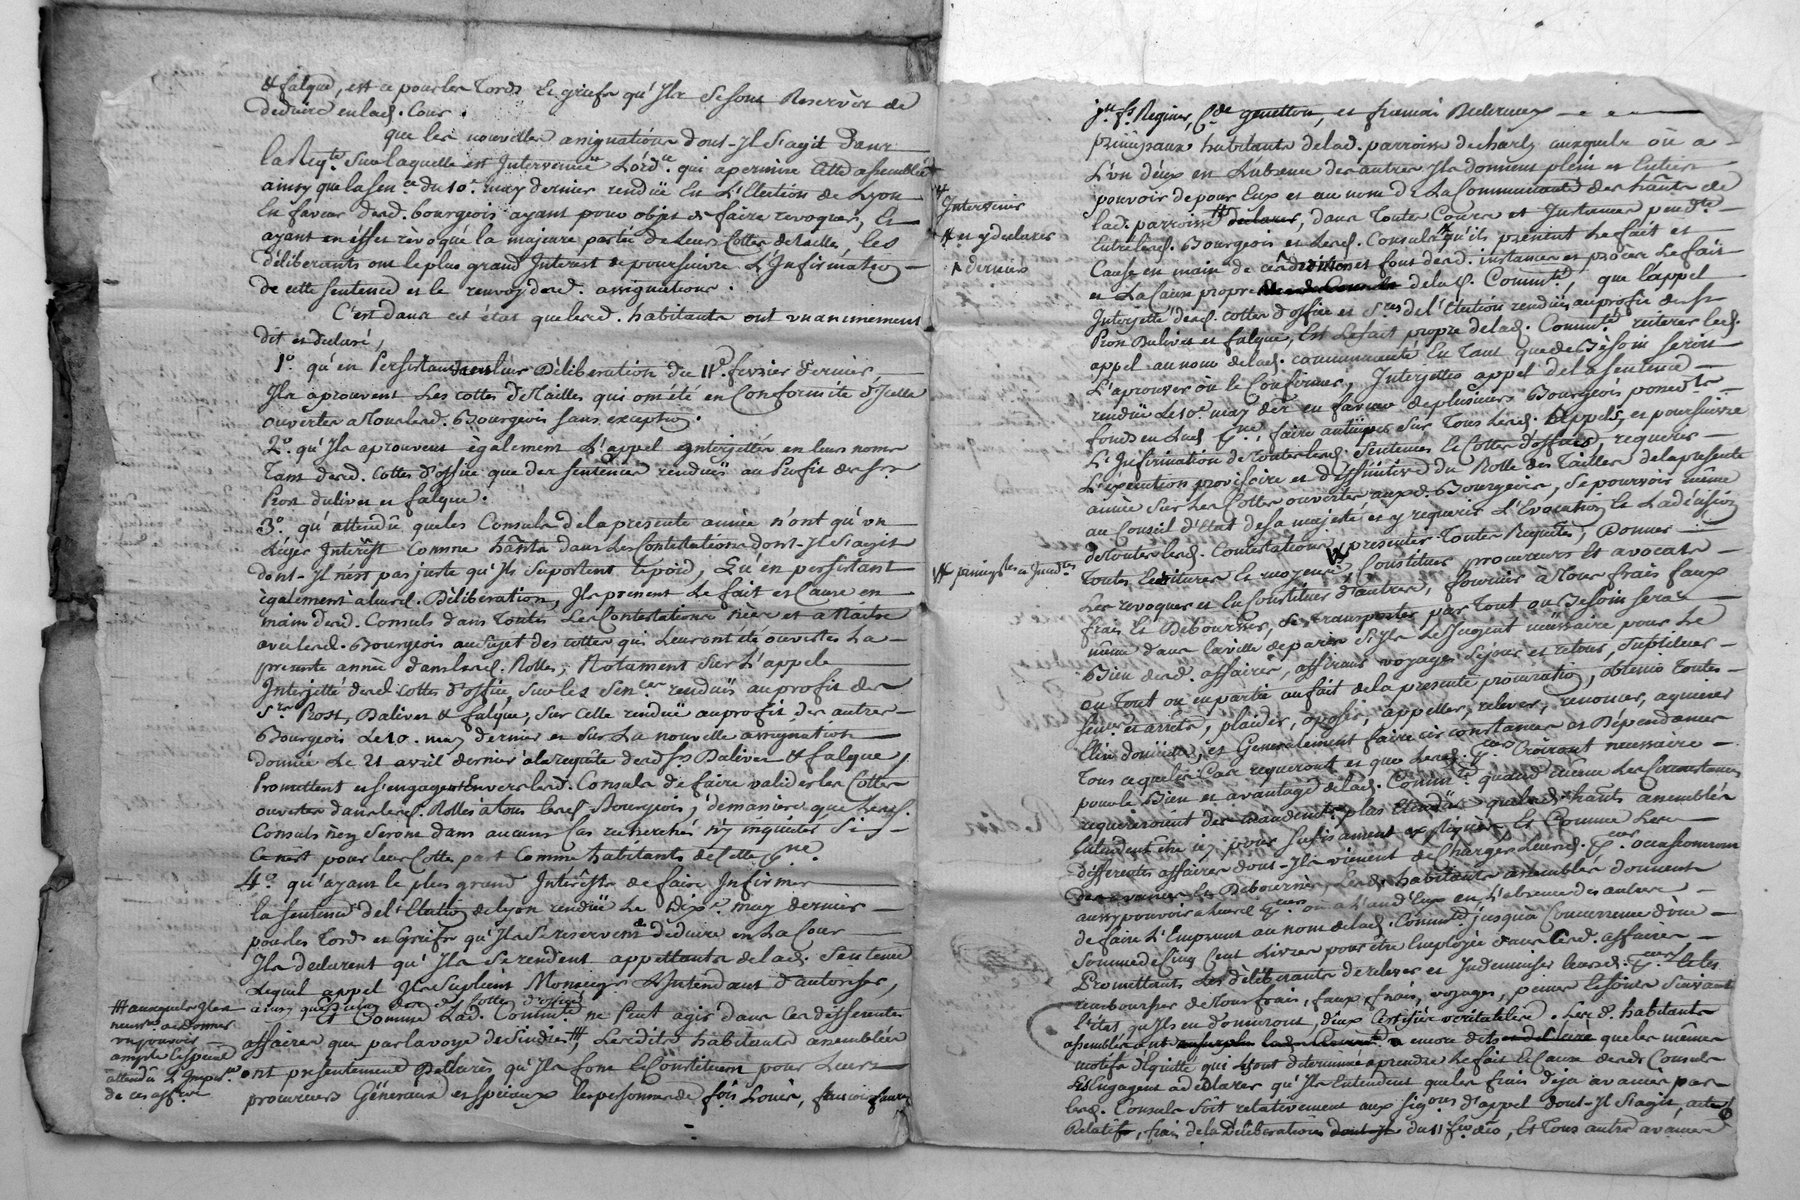 & falque, et ce pour les Torts Et griefs qu'Ils Se sont Reservés de
deduire en lad. Cour.
que les nouvelles assignations dont Il S'agit Dans
la Req.te Sur laquelle est Intervenüe L'ord.ce qui a permis Cette assemblée
ainsy que la Sen.ce du 10.e may dernier rendüe En L'Election de Lyon
En faveur desd. bourgeois ayant pour objet de faire revoquer, Et
ayant en effet rèvoqué la majeure partie de Leurs Cottes de taille, les
déliberants ont le plus grand Interêt de poursuivre L'Infirmation
de cette sentence et le renvoy desd. assignations.
C'est dans cet état que lesd. habitants ont unanimement
dit et declaré,
1.o qu'en Persistant dans leur Déliberation du 11.e fevrier dernier
Ils aprouvent Les cottes de Tailles qui ont été en Conformité d'Icelle
ouvertes a Tous lesd. Bourgeois sans exception.
2.o qu'Ils aprouvent ègalement L'appel Interjettés en leurs noms
Tant desd. Cottes d'office que des sentences rendües au Profit des Srs
Rost Daliver et falque.
3.o qu'attendû que les Consuls de la presente année n'ont qu'un
Lèger Interêst Comme hãnts dans Les Contestations dont Il S'agit
dont Il n'est pas juste qu'Ils Suportent le poid, Qu'en persistant
ègalement a leurd. Déliberation, Ils prenent Le fait et Cause en
main desd. Consuls dans Toutes Les Contestations nées et a Naitre
avec lesd. Bourgeois au Sujet des cottes qui Leur ont été ouvertes La
presente année dans lesd. Rolles, Notament Sur L'appel
Interjetté desd. cottes d'office, Sur les Sen.ces rendües au profit des
S.rs Rost, Daliver & falque, Sur Celle rendüe au profit des autres
Bourgeois Le 10. may dernier et Sur La nouvelle assignation
donnée Le 21 avril dernier à la requête desd. Srs Daliver & falque
Promettent et s'engagent Envers lesd. Consuls de faire valider les Cottes
ouvertes dans lesd. Rolles a tous lesd. Bourgeois, de maniére que Lesd.
Consuls n'en Seront dans aucuns Cas recherchés n'y inquietés Si
Ce n'est pour leur Cotte part Comme habitants de Cette
4.o qu'ayant le plus grand Interêst de faire Infirmer
la sentence de l'Election de lyon rendüe Le Dix.e may dernier
pour les Torts et Griefs qu'Ils Se reservent de deduire en La Cour
Ils declarent qu'Ils Se rendent appellants de lad. Sentence
Lequel appel Ils Suplient Monseig.r L'Intendant d'autoriser,
Et Comme Lad. Commu.té ne peut agir dans ces differentes
affaires que par la voye de Sindics, Lesdits habitants assemblés
ont presentement Déclarés qu'Ils font Et Constituent pour Leurs
procureurs Généraux et spéciaux les personnes de fois Loüis, francois
auxquels Ils
un pouvoir
ample & special
de ces aff.res
Intervenir
et y declarer
dernier
S.r fs Reginer, Cde genetton, et francois
principaux habitants de lad. parroisse de charly auxquels ou a
L'un d'eux en L'absence des autres Ils donnent plein et Entier
pouvoir de pour Eux et au nom de La Communauté des hãnts de
lad. parroisse declarer, dans Toutes Cours et Instances
Entre lesd. Bourgeois et Lesd. Consuls qu'ils prenent Le fait et
Cause en main de ces derniers et font desd. instances et procés Le fait
et La Cause propre de lad. Commu.té, que l'appel
Interjetté desd. cottes d'office et S.ces de l'Election rendües au profit des Srs
Rost Daliver et falque, Est Le fait propre de lad. Commu.té reiterer led.
appel au nom de lad. communauté En Tant que de Besoin Seroit
L'aprouver ou le Confirmer, Interjetter appel de la Sentence
rendüe Le 10.e may der en faveur de plusieurs Bourgeois
fonds en lad. faire anticiper Sur Tous Lesd. appels, et poursuivre
L'Infirmation de toutes lesd. Sentences Et Cottes d'offices, requerir
L'execution provisoire et définitive du Rolle des Tailles de la presente
année Sur Les Cottes ouvertes auxd. Bourgeois, Se pourvoir même
au Conseil d'Etat de sa majesté et y requerir L'Evocation Et La décision
de toutes lesd. Contestations, presenter Toutes Requêtes, Donner
Toutes Ecritures Et moyens, Constituer procureurs Et avocats
Les revoquer et En Constituer d'autres, fournir a Tous frais faux
frais Et Deboursés, Se transporter par Tout ou Besoin Sera
même dans la ville de paris S'ils Le Jugent necessaire pour Le
Bien desd. affaires, affirmer voyages Sejour et retour, Substituer
en Tout ou en partie au fait de la presente procuration, obtenir toutes
sen.ces et arrêts, plaider, oposer, appeller, relever, renoncer, aquiescer
Elire domicile, et Generalement faire circonstances et Dépendances
Tous ce que les Cas requeront et que Lesd. Croiront necessaire
pour le Bien et avantage de lad. Commu.té quand même Les Circonstances
requereroient des mandents plus Etendus, que lesd. hãnts assemblés
Entendent être icy pour Sufisament expliqués Et Comme Les
differentes affaires dont Ils vienent de Charger Leursd. occasionneront
des avances Et Deboursés, Lesd. habitants assemblés donnent
aussy pouvoir a leursd. ou a L'un d'Eux en L'absence des autres
de faire L'Emprunt au nom de lad. Commu.té jusqu'à Concurrence d'une
Somme de Cinq Cent Livres pour etre Employée dans Lesd. affaires
Promettant Les déliberants de relever et Indemniser lesd. Et les
rembourser de Tous frais, faux frais, voyages, peines Et Soins Suivant
l'état qu'Ils en donneront, d'eux Certifié veritable. Lesd. habitants
assemblés ont encore dit et declaré que les mêmes
motifs d'Equitté qui Les ont determinés a prendre Le fait Et Cause desd. Consuls
Les Engagent a déclarer qu'Ils Entendent que les frais déja avancés par
lesd. Consuls Soit relativement aux sig.ons d'appel dont Il S'agit, actes
Relatifs, frais de la Déliberation du 11 fev. der, Et Tous autres avances